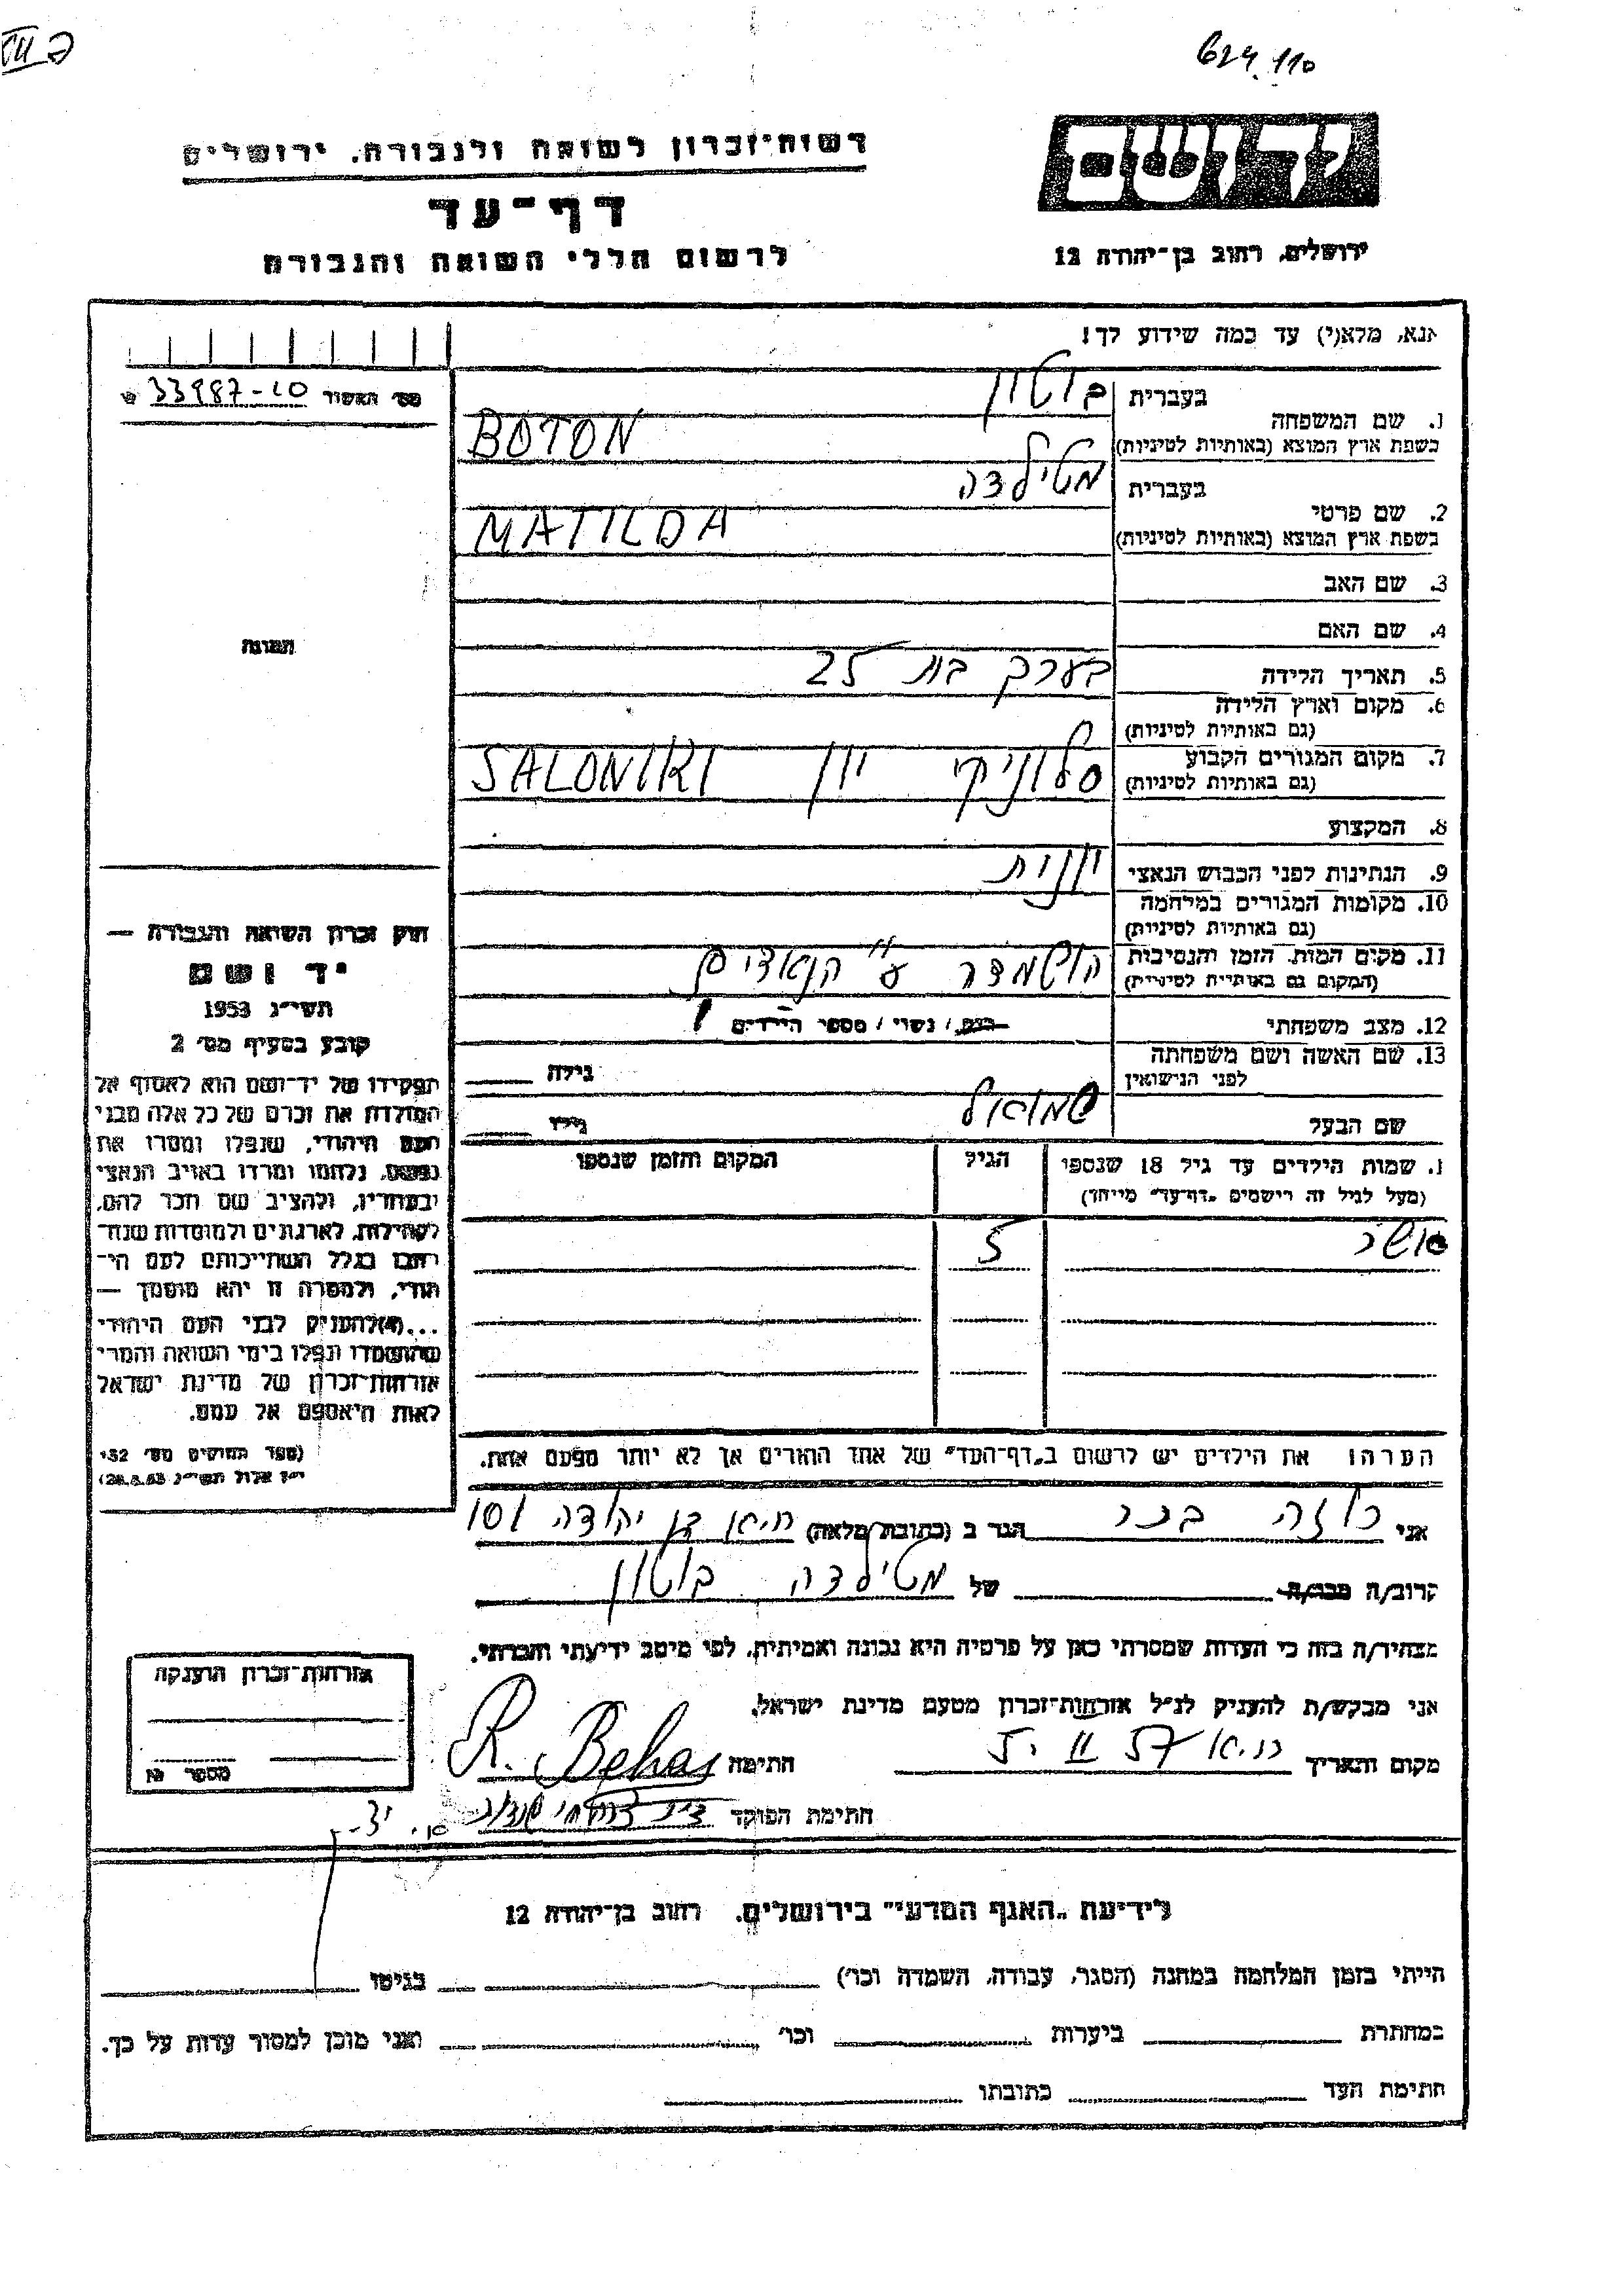 624.110
רשות־זכרון לשואה ולגבורה. ירושלים
יד ושם
דף־עד
ירושלים, רחוב בן־יהודה 12
לרשום חללי השואה והגבורה
אנא, מלא(י) עד כמה שידוע לך!
מס׳ האשור 33987-10
1. שם המשפחה בעברית בוטון
בשפת ארץ המוצא (באותיות לטיניות) BOTON
2. שם פרטי בעברית מטילדה
בשפת ארץ המוצא (באותיות לטיניות) MATILDA
3. שם האב
4. שם האם
תמונה
5. תאריך הלידה בערך בת 25
6. מקום וארץ הלידה
(גם באותיות לטיניות)
7. מקום המגורים הקבוע סלוניקי יון SALONIKI
(גם באותיות לטיניות)
8. המקצוע
9. הנתינות לפני הכבוש הנאצי יונית
10. מקומות המגורים במלחמה
(גם באותיות לטיניות)
11. מקום המות, הזמן והנסיבות הושמדה ע״י הנאצים
(המקום גם באותיות לטיניות)
12. מצב משפחתי רווק / נשוי / מספר הילדים 1
13. שם האשה ושם משפחתה
לפני הנישואין גילה
שם הבעל שמואל גילו
חוק זכרון השואה והגבורה —
יד ושם
תשי״ג 1953
קובע בסעיף מס׳ 2
תפקידו של יד־ושם הוא לאסוף אל
המולדת את זכרם של כל אלה מבני
העם היהודי, שנפלו ומסרו את
נפשם, נלחמו ומרדו באויב הנאצי
ובעוזריו, ולהציב שם וזכר להם,
לקהילות, לארגונים ולמוסדות שנח־
רבו בגלל השתייכותם לעם הי־
הודי, ולמטרה זו יהא מוסמך —
...(4) להעניק לבני העם היהודי
שהושמדו ונפלו בימי השואה והמרי
אזרחות־זכרון של מדינת ישראל
לאות היאספם אל עמם.
(ספר החוקים מס׳ 132
י״ז אלול תשי״ג 28.8.53)
1. שמות הילדים עד גיל 18 שנספו הגיל המקום והזמן שנספו
(מעל לגיל זה רושמים "דף־עד" מיוחד)
אשר 5
הערה: את הילדים יש לרשום ב"דף־העד" של אחד ההורים אך לא יותר מפעם אחת.
אני רוזה בכר הגר ב (כתובת מלאה) חיפה בן יהודה 101
קרוב/ה מכר/ה של מטילדה בוטון
מצהיר/ה בזה כי העדות שמסרתי כאן על פרטיה היא נכונה ואמיתית, לפי מיטב ידיעתי והכרתי.
אני מבקש/ת להעניק לנ״ל אזרחות־זכרון מטעם מדינת ישראל.
מקום ותאריך חיפה 5. II 57 חתימה R. Behar
חתימת הפוקד
אזרחות־זכרון הוענקה
מספר
לידיעת "האגף המדעי" בירושלים, רחוב בן־יהודה 12
הייתי בזמן המלחמה במחנה (הסגר, עבודה, השמדה וכו׳) בגיטו
במחתרת ביערות וכו׳ ואני מוכן למסור עדות על כך.
חתימת העד כתובתו